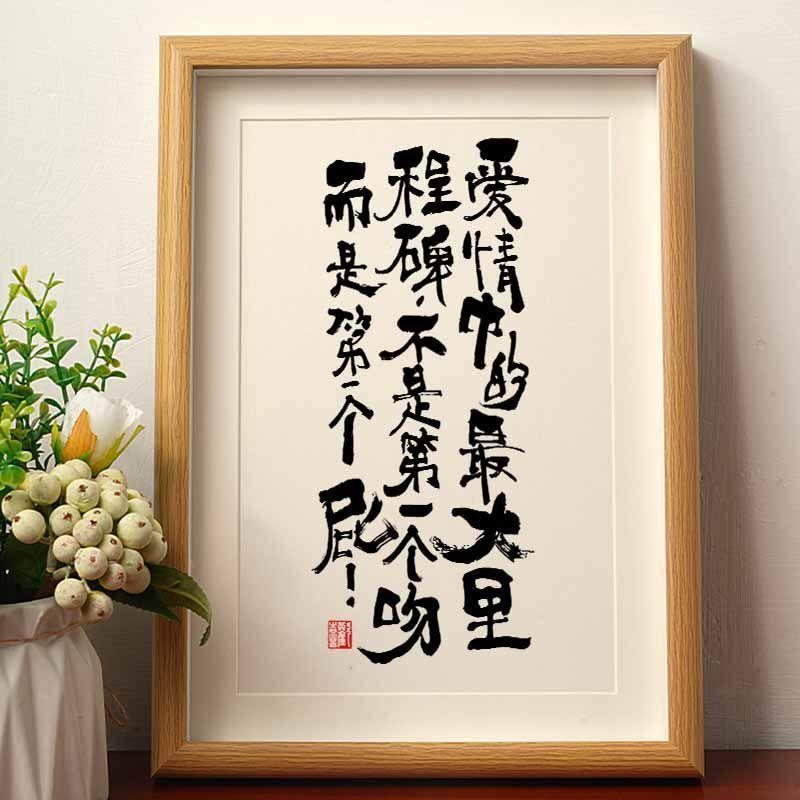 愛情中的最大里
程碑,不是第一个吻
而是第一个屁!